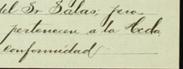 del Sr. Salas; pero
pertenecen a la Hcda
conformidad